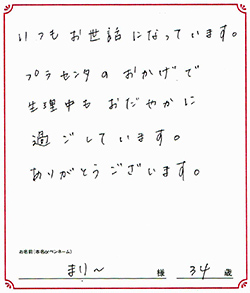 いつもお世話になっています。
プラセンタのおかげで
生理中もおだやかに
過ごしています。
ありがとうございます。
お名前(本名orペンネーム)
まり〜 様 34 歳